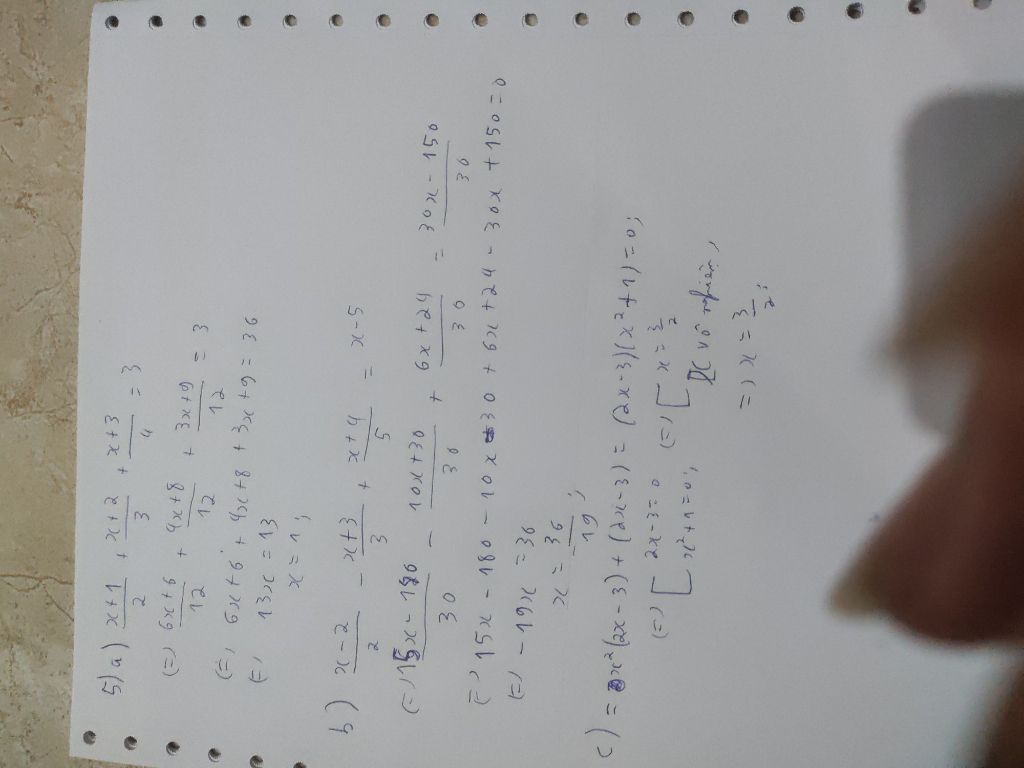 5) a) x+1/2 + x+2/3 + x+3/4 = 3
(=) 6x+6/12 + 4x+8/12 + 3x+9/12 = 3
(=) 6x+6+4x+8+3x+9=36
(=) 13x=13
x=1;
b) x-2/2 - x+3/3 + x+4/5 = x-5
(=) 15x-180/30 - 10x+30/30 + 6x+24/30 = 30x-150/30
(=) 15x-180-10x-30+6x+24-30x+150=0
(=) -19x=36
x=-36/19;
c) = x²(2x-3)+(2x-3)=(2x-3)(x²+1)=0;
(=) [ 2x-3=0 (=) [ x=3/2
x²+1=0; x vô nghiệm;
=) x=3/2;